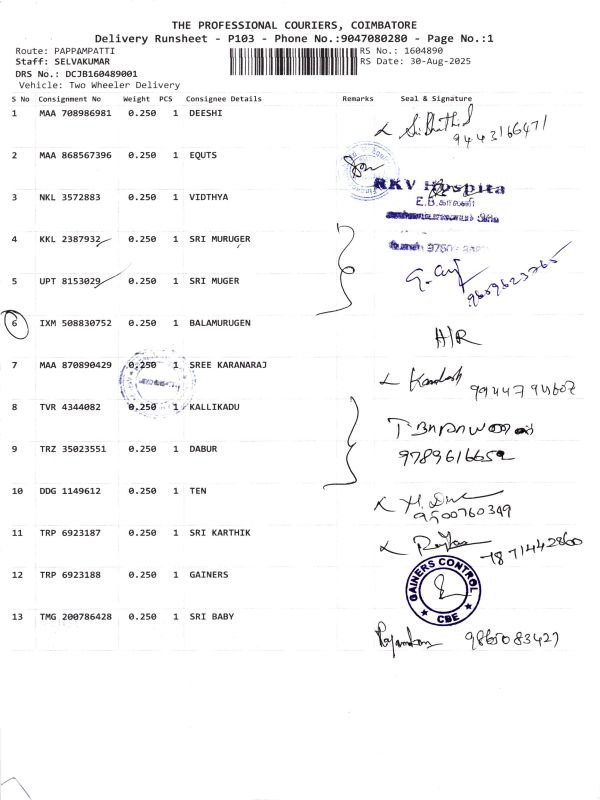 THE PROFESSIONAL COURIERS, COIMBATORE
Delivery Runsheet - P103 - Phone No.:9047080280 - Page No.:1
Route: PAPPAMPATTI
RS No.: 1604890
Staff: SELVAKUMAR
RS Date: 30-Aug-2025
DRS No.: DCJB160489001
Vehicle: Two Wheeler Delivery
S No Consignment No Weight PCS Consignee Details Remarks Seal & Signature
1 MAA 708986981 0.250 1 DEESHI
9443166471
2 MAA 868567396 0.250 1 EQUTS
RKV Hospita
3 NKL 3572883 0.250 1 VIDTHYA
E.B.காலனி
4 KKL 2387932 0.250 1 SRI MURUGER
5 UPT 8153029 0.250 1 SRI MUGER
9659623765
6 IXM 508830752 0.250 1 BALAMURUGEN
H/R
7 MAA 870890429 0.250 1 SREE KARANARAJ
8 TVR 4344082 0.250 1 KALLIKADU
9 TRZ 35023551 0.250 1 DABUR
9789616652
10 DDG 1149612 0.250 1 TEN
9500760349
11 TRP 6923187 0.250 1 SRI KARTHIK
7871442860
12 TRP 6923188 0.250 1 GAINERS
GAINERS CONTROL
CBE
13 TMG 200786428 0.250 1 SRI BABY
9865083427